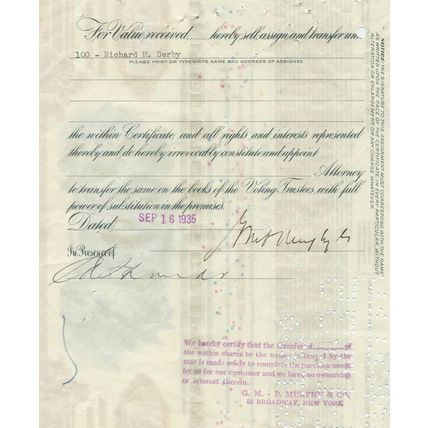 For Value received, hereby sell, assign and transfer unto
100 - Richard H. Derby
PLEASE PRINT OR TYPEWRITE NAME AND ADDRESS OF ASSIGNEE
the within Certificate, and all rights and interests represented
thereby and do hereby irrevocably constitute and appoint
Attorney
to transfer the same on the books of the Voting Trustees, with full
power of substitution in the premises.
Dated SEP 16 1935
In Presence of
We hereby certify that the transfer of of
the within shares to the name by the
star is made solely to complete the purchase made
by us for our customer and we have no ownership
or interest therein.
G. M.-P. MURPHY & CO.
52 BROADWAY, NEW YORK
NOTICE: THE SIGNATURE TO THIS ASSIGNMENT MUST CORRESPOND WITH THE NAME
AS WRITTEN UPON THE FACE OF THE CERTIFICATE, IN EVERY PARTICULAR, WITHOUT
ALTERATION OR ENLARGEMENT OR ANY CHANGE WHATEVER.